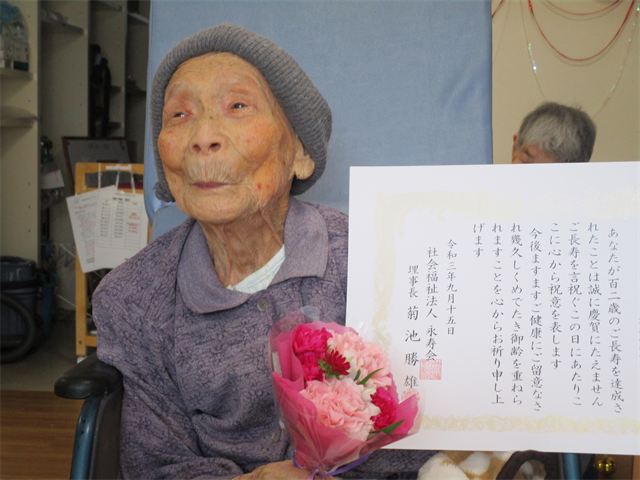 あなたが百二歳のご長寿を達成さ
れたことは誠に慶賀にたえません
ご長寿を言祝ぐこの日にあたりこ
こに心から祝意を表します
今後ますますご健康にご留意なさ
れ幾久しくめでたき御齢を重ねら
れますことを心からお祈り申し上
げます
令和三年九月十五日
社会福祉法人 永寿会
理事長 菊池勝雄